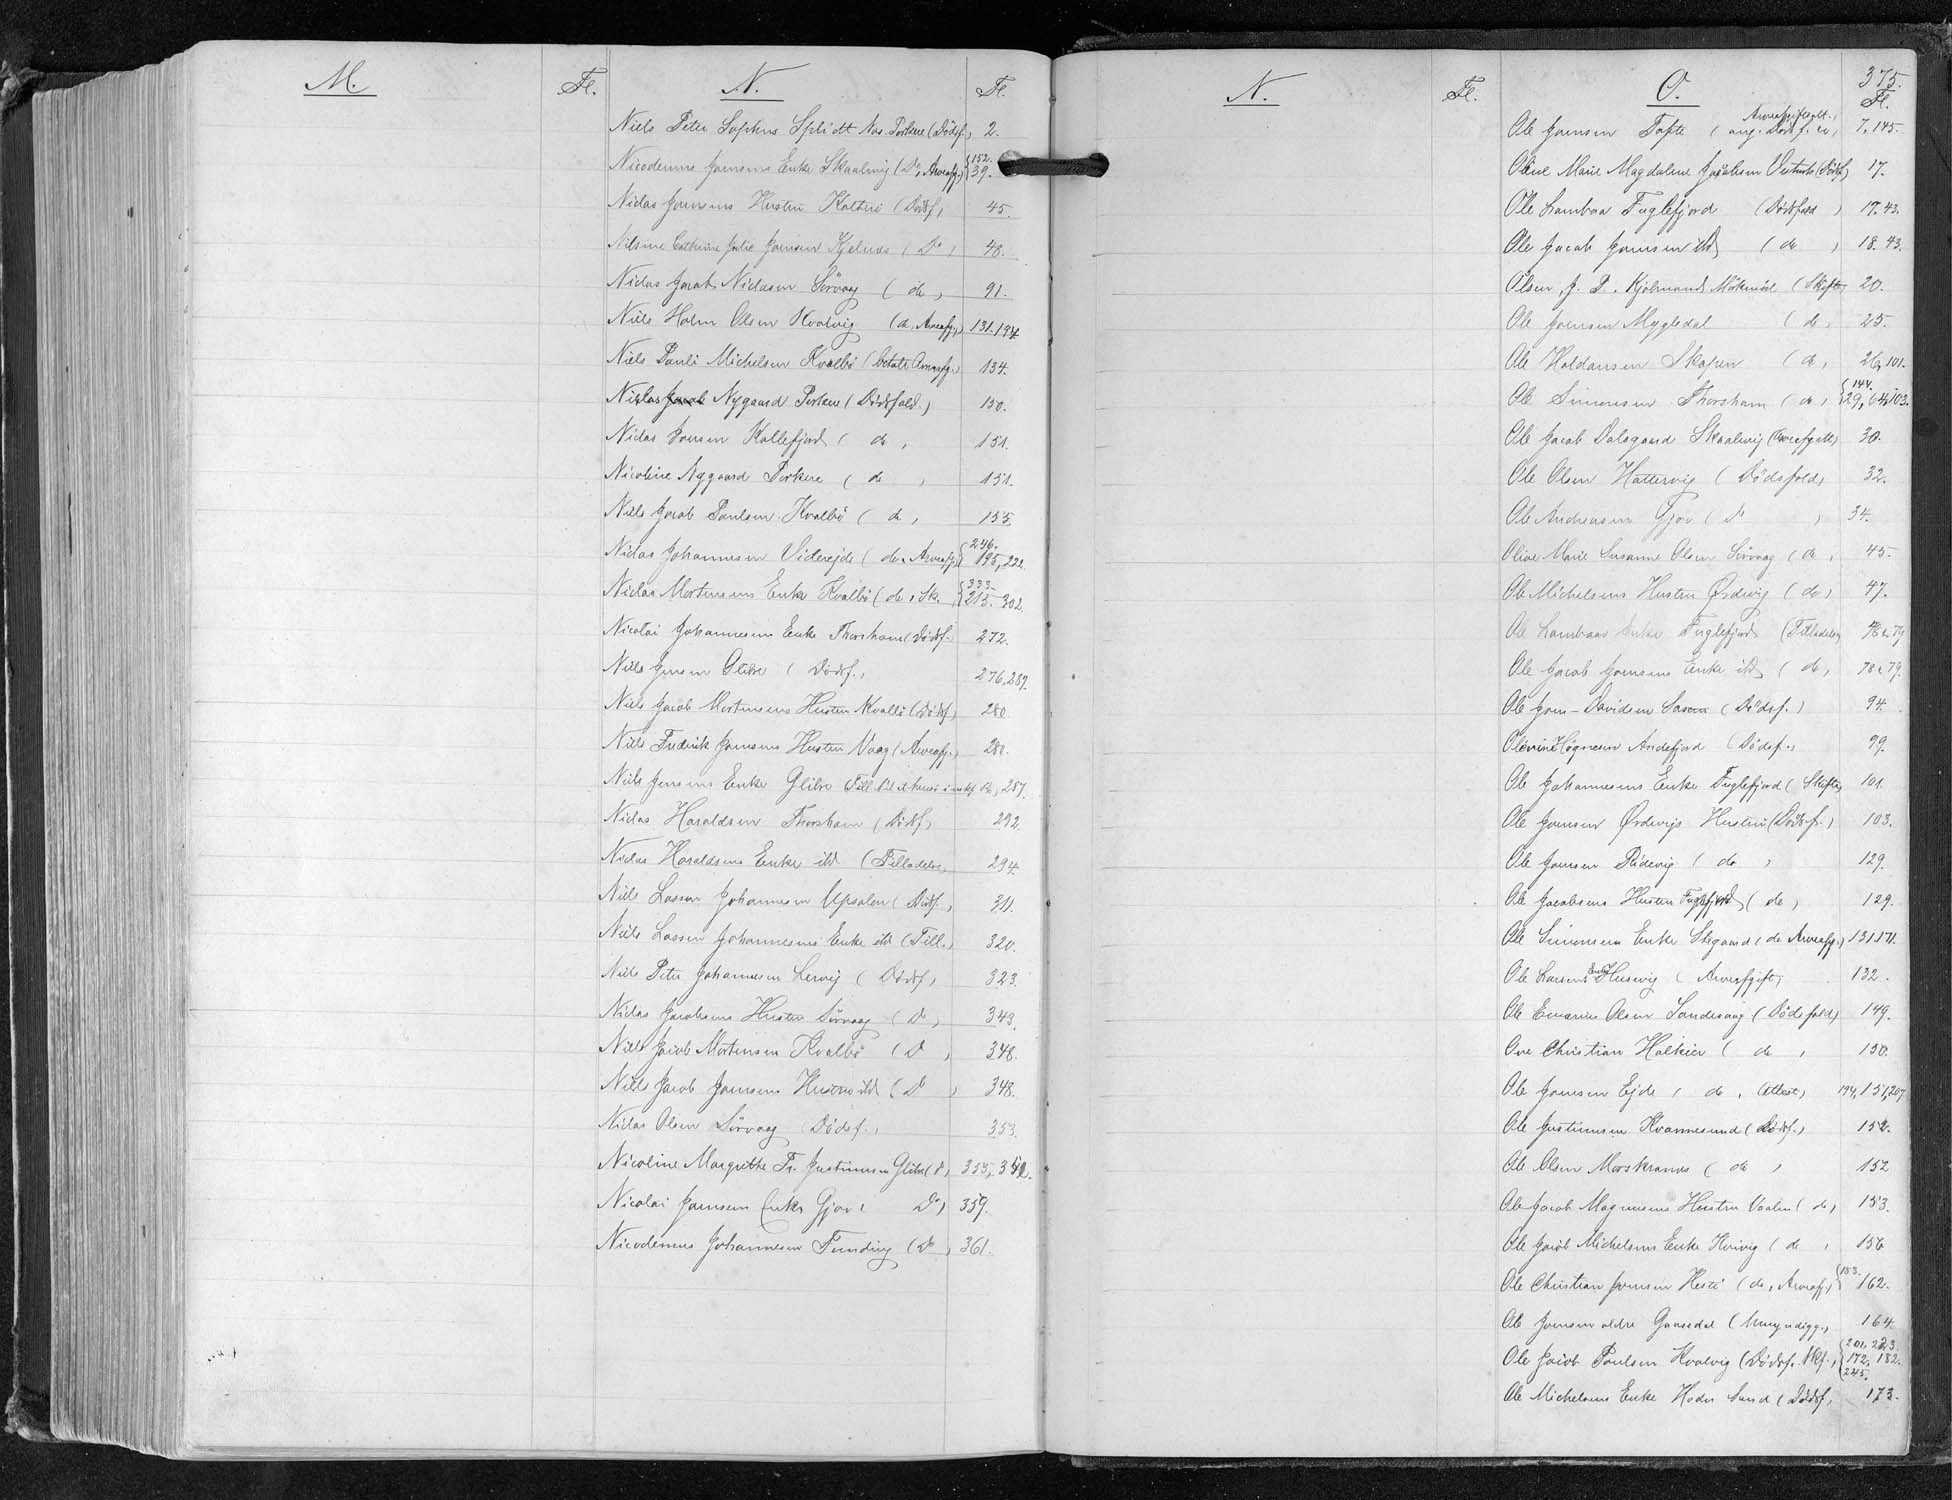 M.
Fl.
N.
Fl.
Niels Peter Sophus Splidt Næs Porkere (Dödsf.) 2.
Nicodemus Joensens Enke Skaalevig (Do, Arveafg.) {152. 39.
Niclas Joensens Hustru Kolter (Dödsf.) 45.
Nilsine Cathrine Julie Joensen Kjelnæs (Do) 48.
Niclas Jacob Niclasen Sörvaag (do) 91.
Niels Holm Olsen Kvalvig (do, Arveafg.) 131. 194.
Niels Pauli Michelsen Kvalbö (betalt Arveafg.) 134.
Niclas Jacob Nygaard Porkere (Dödsfald) 150.
Niclas Joensen Kollefjord (do) 151.
Nicoline Nygaard Porkere (do) 151.
Niels Jacob Poulsen Kvalbö (do) 155.
Niclas Johannesen Videreide (do, Arveafg.) {246. 195, 222.
Niclas Mortensens Enke Kvalbö (do, Sk. {333. 215. 302.
Nicolai Johannesens Enke Thorshavn (Dödsf. 272.
Niels Jensen Glibre (Dödsf.) 276, 287.
Niels Jacob Mortensens Hustru Kvalbö (Dödsf.) 280.
Niels Fredrik Joensens Hustru Vaag (Arveafg.) 281.
Niels Jensens Enke Glibre 287.
Niclas Haraldsen Thorshavn (Dödsf.) 292.
Niclas Haraldsens Enke ibd (Tilladelse) 294.
Niels Lassen Johannesen Upsalen (Dödsf.) 311.
Niels Lassen Johannesens Enke ibd (Till.) 320.
Niels Peter Johannesen Lervig (Dödsf.) 323.
Niclas Jacobsens Hustru Sörvaag (Do) 343.
Niels Jacob Mortensen Kvalbö (Do) 348.
Niels Jacob Joensens Hustru ibd (Do) 348.
Niclas Olsen Sörvaag (Dödsf.) 353.
Nicoline Margrethe Fr. Justinussen Glibre (Do) 355, 352.
Nicolai Joensens Enke Gjov (Do) 359.
Nicodemus Johannesen Funding (Do) 361.
N.
Fl.
O.
375.
Fl.
Ole Joensen Tofte 7, 145.
Olive Marie Magdalene Jacobsen (Dödsf.) 17.
Ole Lambaa Fuglefjord (Dödsfald) 17. 43.
Ole Jacob Joensen ibd (do) 18. 43.
Olsen, J. P. Kjöbmand (Skifte) 20.
Ole Joensen Mygledal (do) 25.
Ole Haldansen Skopen (do) 26, 101.
Ole Simonsen Thorshavn (do) {144. 29, 64, 103.
Ole Jacob Dalsgaard Skaalevig (Arveafgift) 30.
Ole Olsen Hattervig (Dödsfald) 32.
Ole Andreasen Gjov (Do) 34.
Olive Marie Susanne Olsen Sörvaag (do) 45.
Ole Michelsens Hustru Ørdevig (do) 47.
Ole Lambaas Enke Fuglefjord (Tilladelse) 78 & 79
Ole Jacob Joensens Enke ibd (do) 78 & 79.
Ole Joen-Davidsen (Dödsf.) 94.
Olevine Högnesen Andefjord (Dödsf.) 99.
Ole Johannesens Enke Fuglefjord (Skifte) 101.
Ole Joensen Ørdevigs Hustru (Dödsf.) 103.
Ole Joensen (do) 129.
Ole Jacobsens Hustru Fuglefjord (do) 129.
Ole Simonsens Enke (do Arveafg.) 131 171.
Ole Larsens Enke Husevig (Arveafgift) 132.
Ole Olsen Sandevaag (Dödsfald) 149.
Ove Christian Halkier (do) 150.
Ole Joensen Ejde (do, Attest) 194, 151, 207
Ole Justinussen Kvannesund (Dödsf.) 152.
Ole Olsen Morskranes (do) 152
Ole Jacob Magnusens Hustru (do) 153.
Ole Jacob Michelsens Enke (do) 156
Ole Christian Joensen Hestö (do, Arveafg.) {183. 162.
Ole Joensen ældre Gaasedal (Umyndigg.) 164.
Ole Jacob Poulsen Kvalvig (Dödsf. Skf.) {201, 223. 172, 182. 245.
Ole Michelsens Enke Sand (Dödsf.) 173.